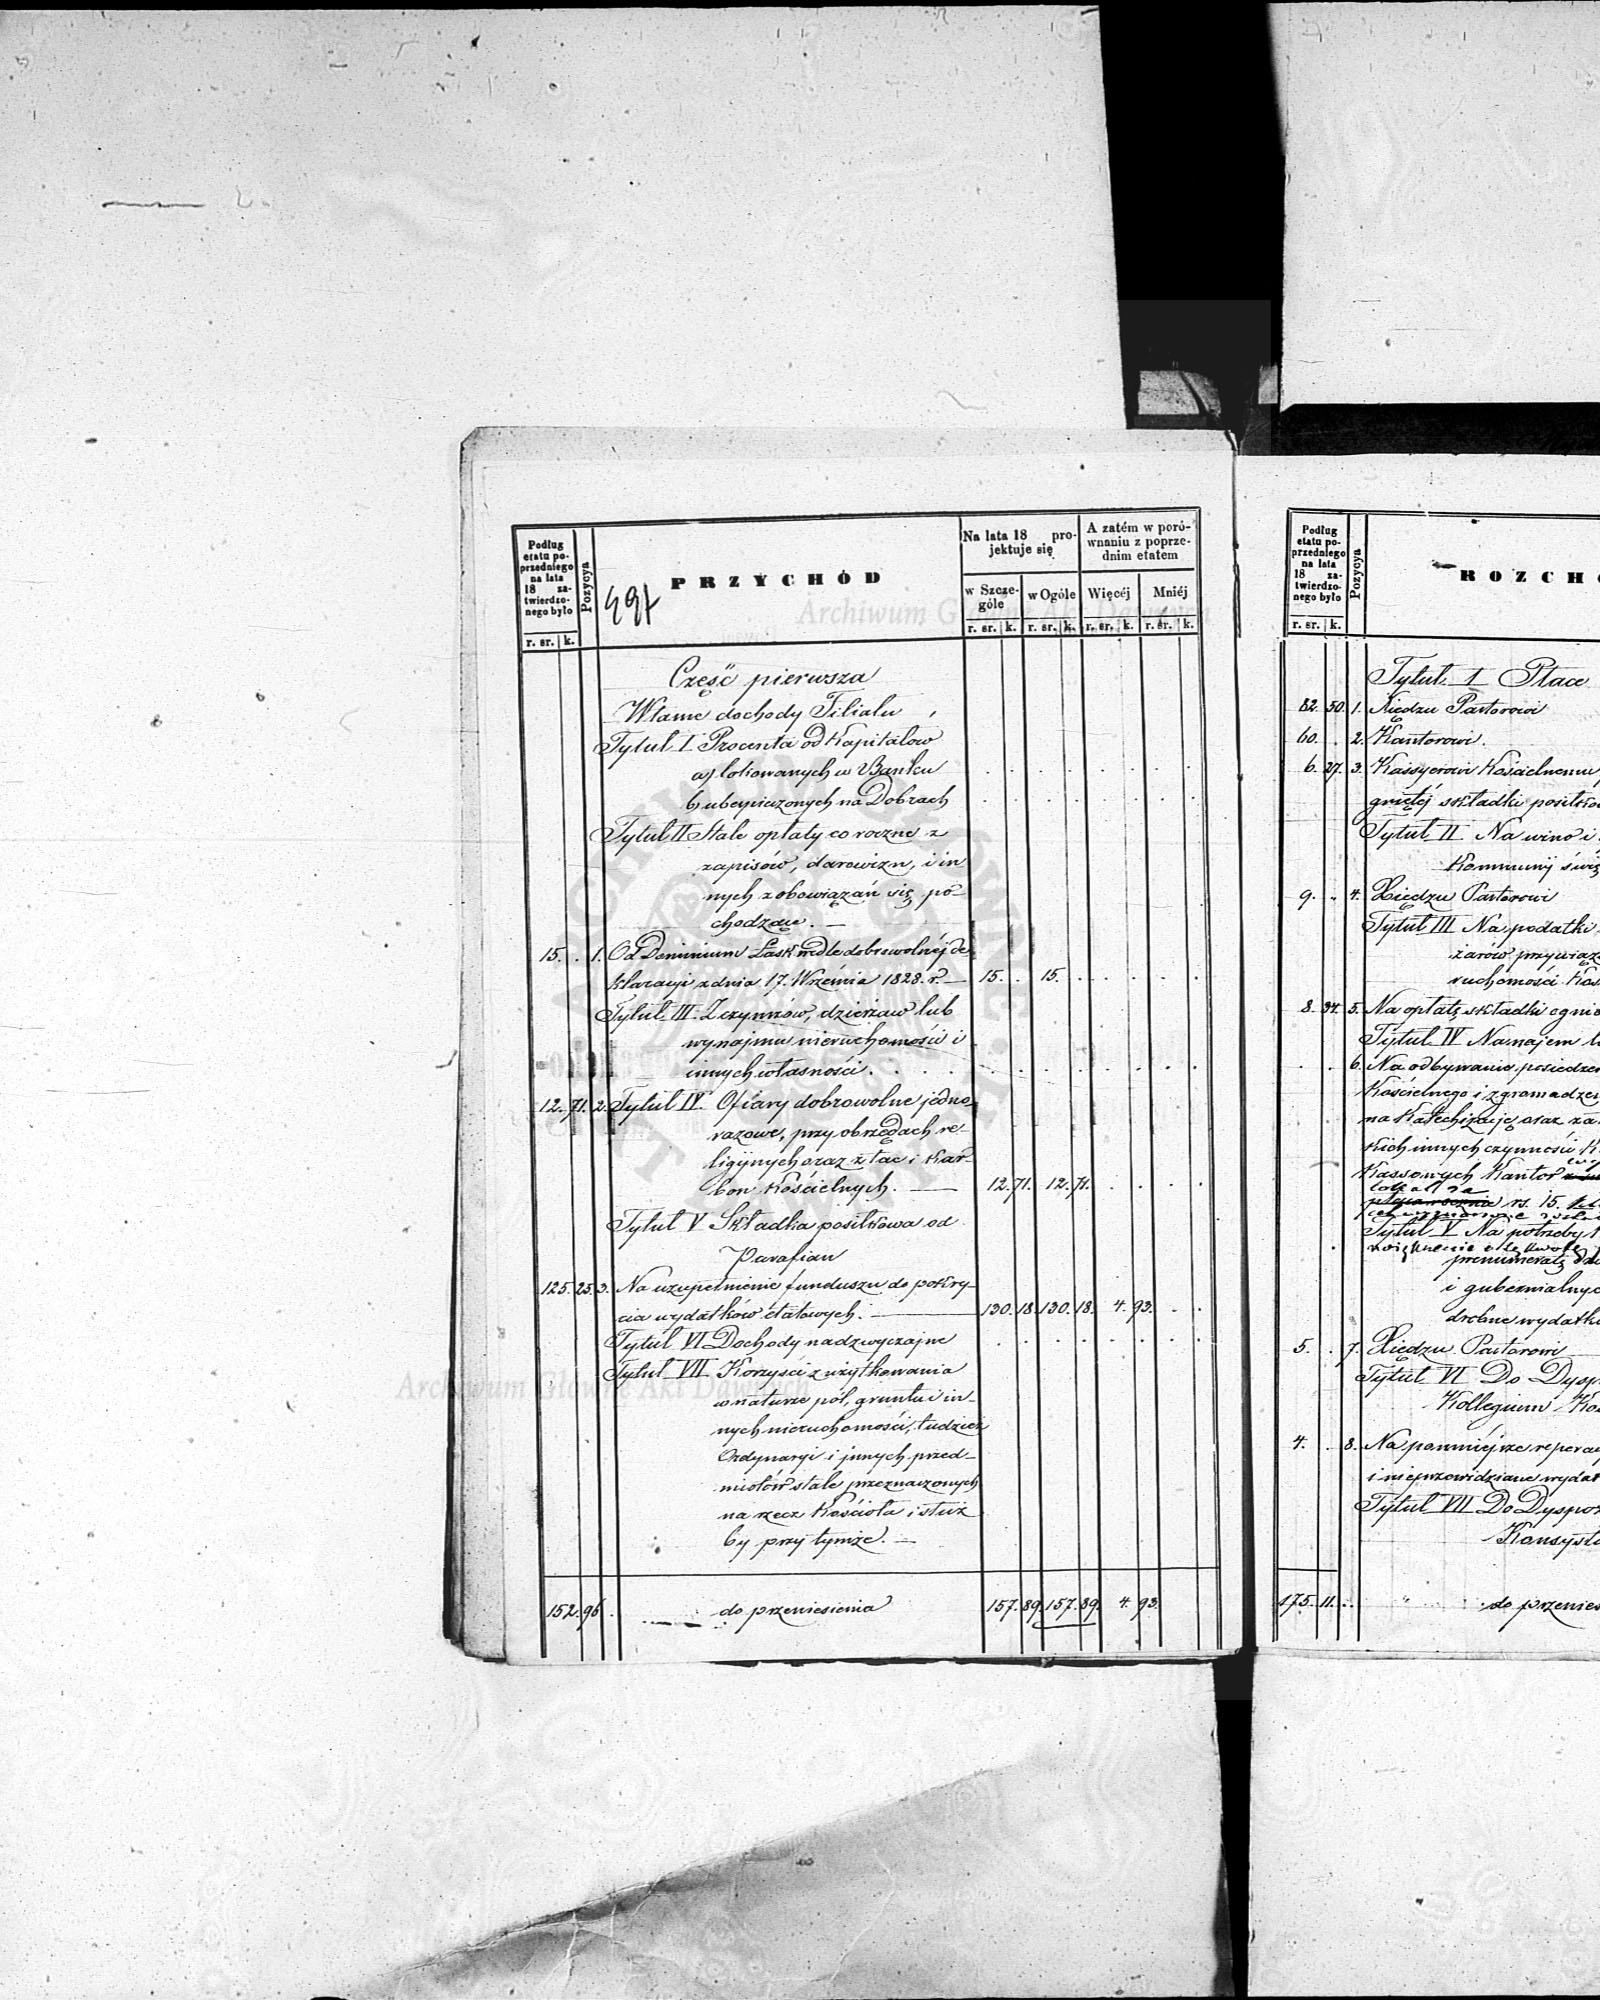 Podług
etatu po-
przedniego
na lata
18 za-
twierdzo-
nego było
Pozycya
PRZYCHÓD
Na lata 18 pro-
jektuje się
A zatém w poró-
wnaniu z poprze-
dnim etatem
w Szcze-
góle
w Ogóle
Więcéj
Mniéj
r. sr. k.
r. sr. k. r. sr. k. r. sr. k. r. sr. k.
Część pierwsza
Własne dochody Filiału
Tytuł I Procenta od Kapitałow
a) lokowanych w Banku
b ubezpieczonych na Dobrach
Tytuł II Stałe opłaty co roczne z
zapisów, darowizn, i in
nych zobowiązań się po-
chodzące. —
15. . 1. Od Dominium Łask wedle dobrowolnéj de
klaracyi z dnia 17. Września 1828. r. — 15. . 15.
Tytuł III. Z czynszów, dzierżaw lub
wynajmu nieruchomości i
innych własności.
12. 71. 2. Tytuł IV. Ofiary dobrowolne jedno
razowe, przy obrzędach re-
ligijnych oraz z tac i Kar-
bon Kościelnych. — 12. 71. 12. 71.
Tytuł V Składka posiłkowa od
Parafian
125. 25. 3. Na uzupełnienie funduszu do pokry-
cia wydatków etatowych. — 130. 18. 130. 18. 4. 93.
Tytuł VI Dochody nadzwyczajne
Tytuł VII Korzyści z użytkowania
w naturze pól, gruntu i in-
nych nieruchomości, tudzież
Ordynaryi i jnnych przed-
miotów stale przeznaczonych
na rzecz Kościoła i służ
by przy tymże. —
152. 96. do przeniesienia 157. 89. 157. 89. 4. 93.
Podług
etatu po-
przedniego
na lata
18 za-
twierdzo-
nego było
Pozycya
ROZCH
r. sr. k.
Tytuł I Płace
82. 50. 1. Xiędzu Pastorowi
60. . 2. Kantorowi.
6. 27. 3. Kassyerowi Kościelnemu
składki
Tytuł II Na wino i
Kommunij
9. . 4. Xiędzu Pastorowi
Tytuł III Na podatki
żarów
ruchomości
8. 34. 5. Na opłatę składki
Tytuł IV Na najem
6. Na odbywanie
Kościelnego i
na Katechizacje oraz
Kich innych czynności
Kassowych Kantor
rs. 15.
Tytuł V Na potrzeby
i
drobne
5. . 7. Xiędzu Pastorowi
Tytuł VI Do
Kollegium
4. . 8. Na pomniejsze
i nieprzewidziane
Tytuł VII Do
175. 11. do
Archiwum Główne Akt Dawnych
Archiwum Główne Akt Dawnych